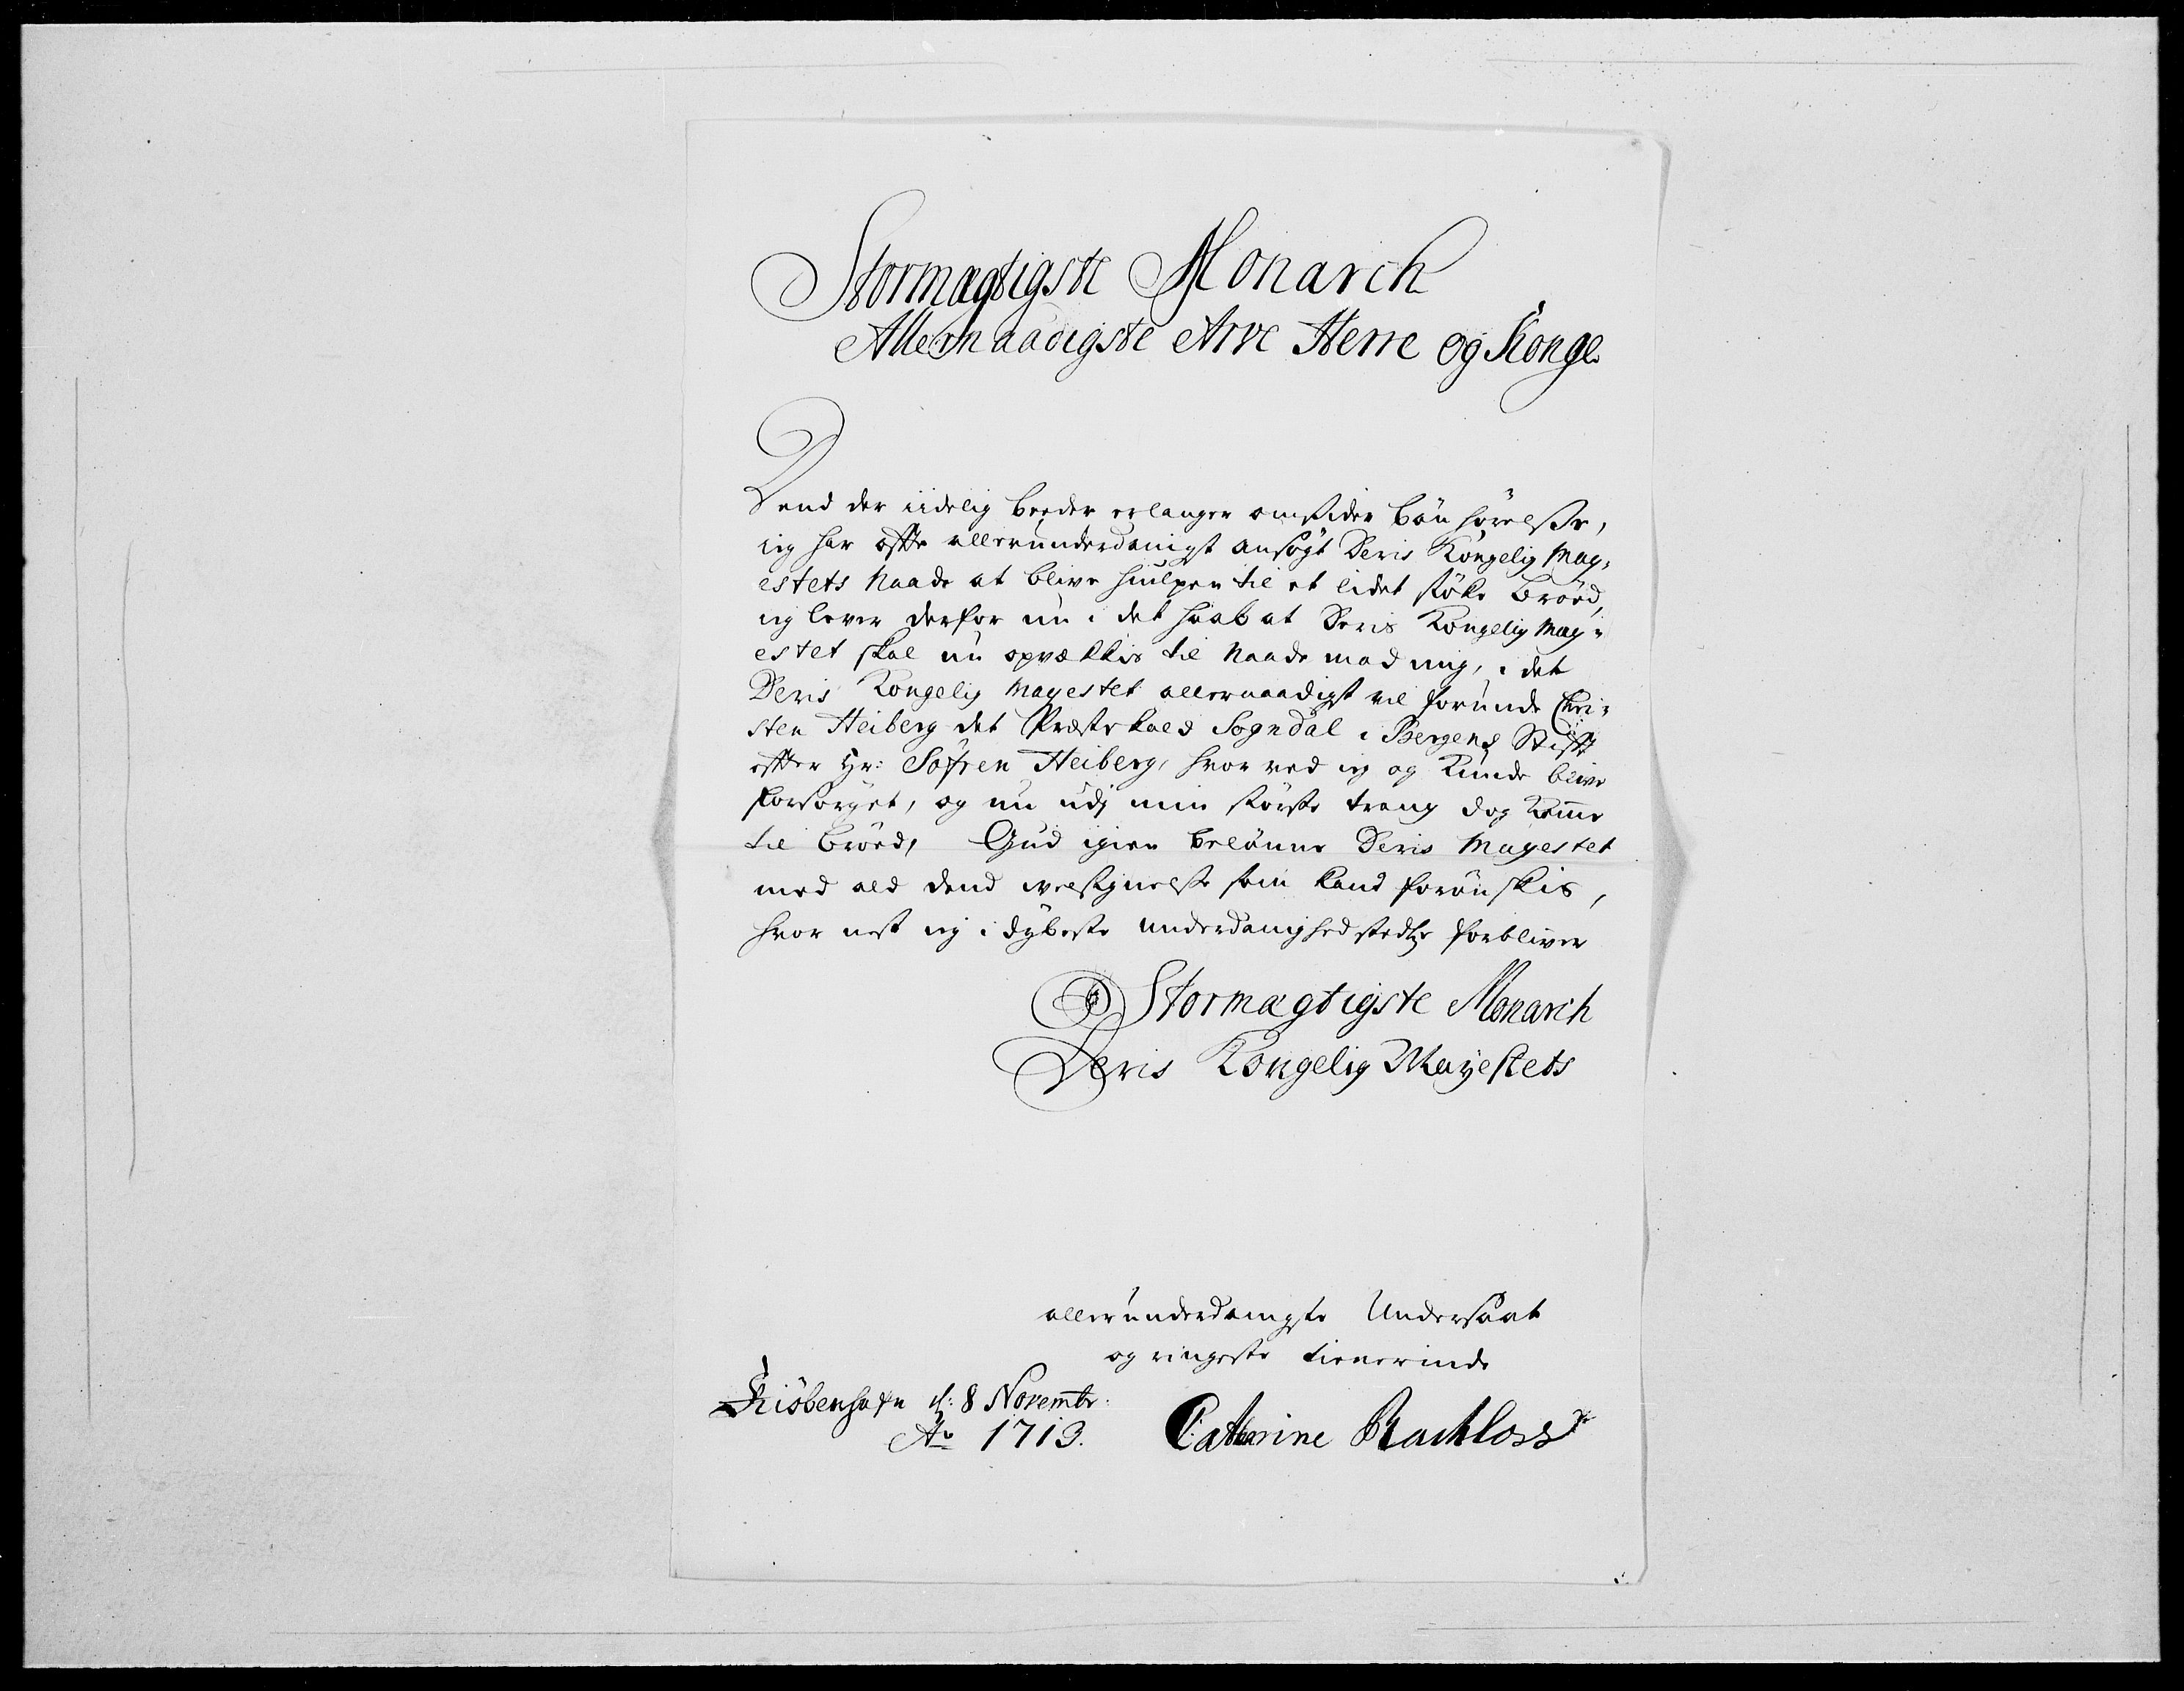 Stormægtigste Monarch
Allernaadigste Arve Herre og Konge
Dend der iidelig beeder erlanger omsider bön hörelsse,
ieg har offte allerunderdanigst ansögt Deris Kongelig May,
estets Naade at blive hiulpen til et lidet stöke Bröed,
ieg lever derfor nu i det haab at Deris Kongelig May-
estet skal nu opvækkis til Naade mod mig, i det
Deris Kongelig Mayestet allernaadigst vil forunde Chri-
sten Heiberg det Præste kald Sogndal i Bergens Stifft
effter Hr: Söfren Heiberg, hvor ved ieg og kunde blive
forsörget, og nu udj min störste trang dog komme
til Bröed, Gud igien belönne Deris Mayestet
med ald dend velsignelsse som kand forönskis,
hvor nest ieg i dybeste underdanighed stedtze forbliver
Stormægtigste Monarch
Deris Kongelig Mayestets
allerunderdanigste Undersaat
og ringeste tienerinde
Kiöbenhafn d: 8 Novembr:
Ao 1713.
Catherine Rachloss